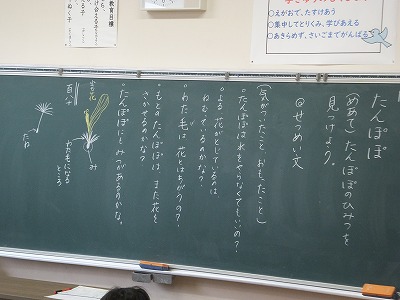 教育目標
○えがおで、たすけあう
○集中してとりくみ、学びあえる
○あきらめず、さいごまでがんばる
たんぽぽ
(めあて)たんぽぽのひみつを
見つけよう。
@せつめい文
(気がついたこと おもったこと)
・たんぽぽは水をやらなくてもいいの?
・よる、花がとじているのは
ねむっているのかな?
・わた毛は花とはちがうの?
・もとのたんぽぽは、また花を
さかせるのかな?
・たんぽぽにもみつがあるのかな。
小さい花
百八十
み
わた毛になる
ところ
たね